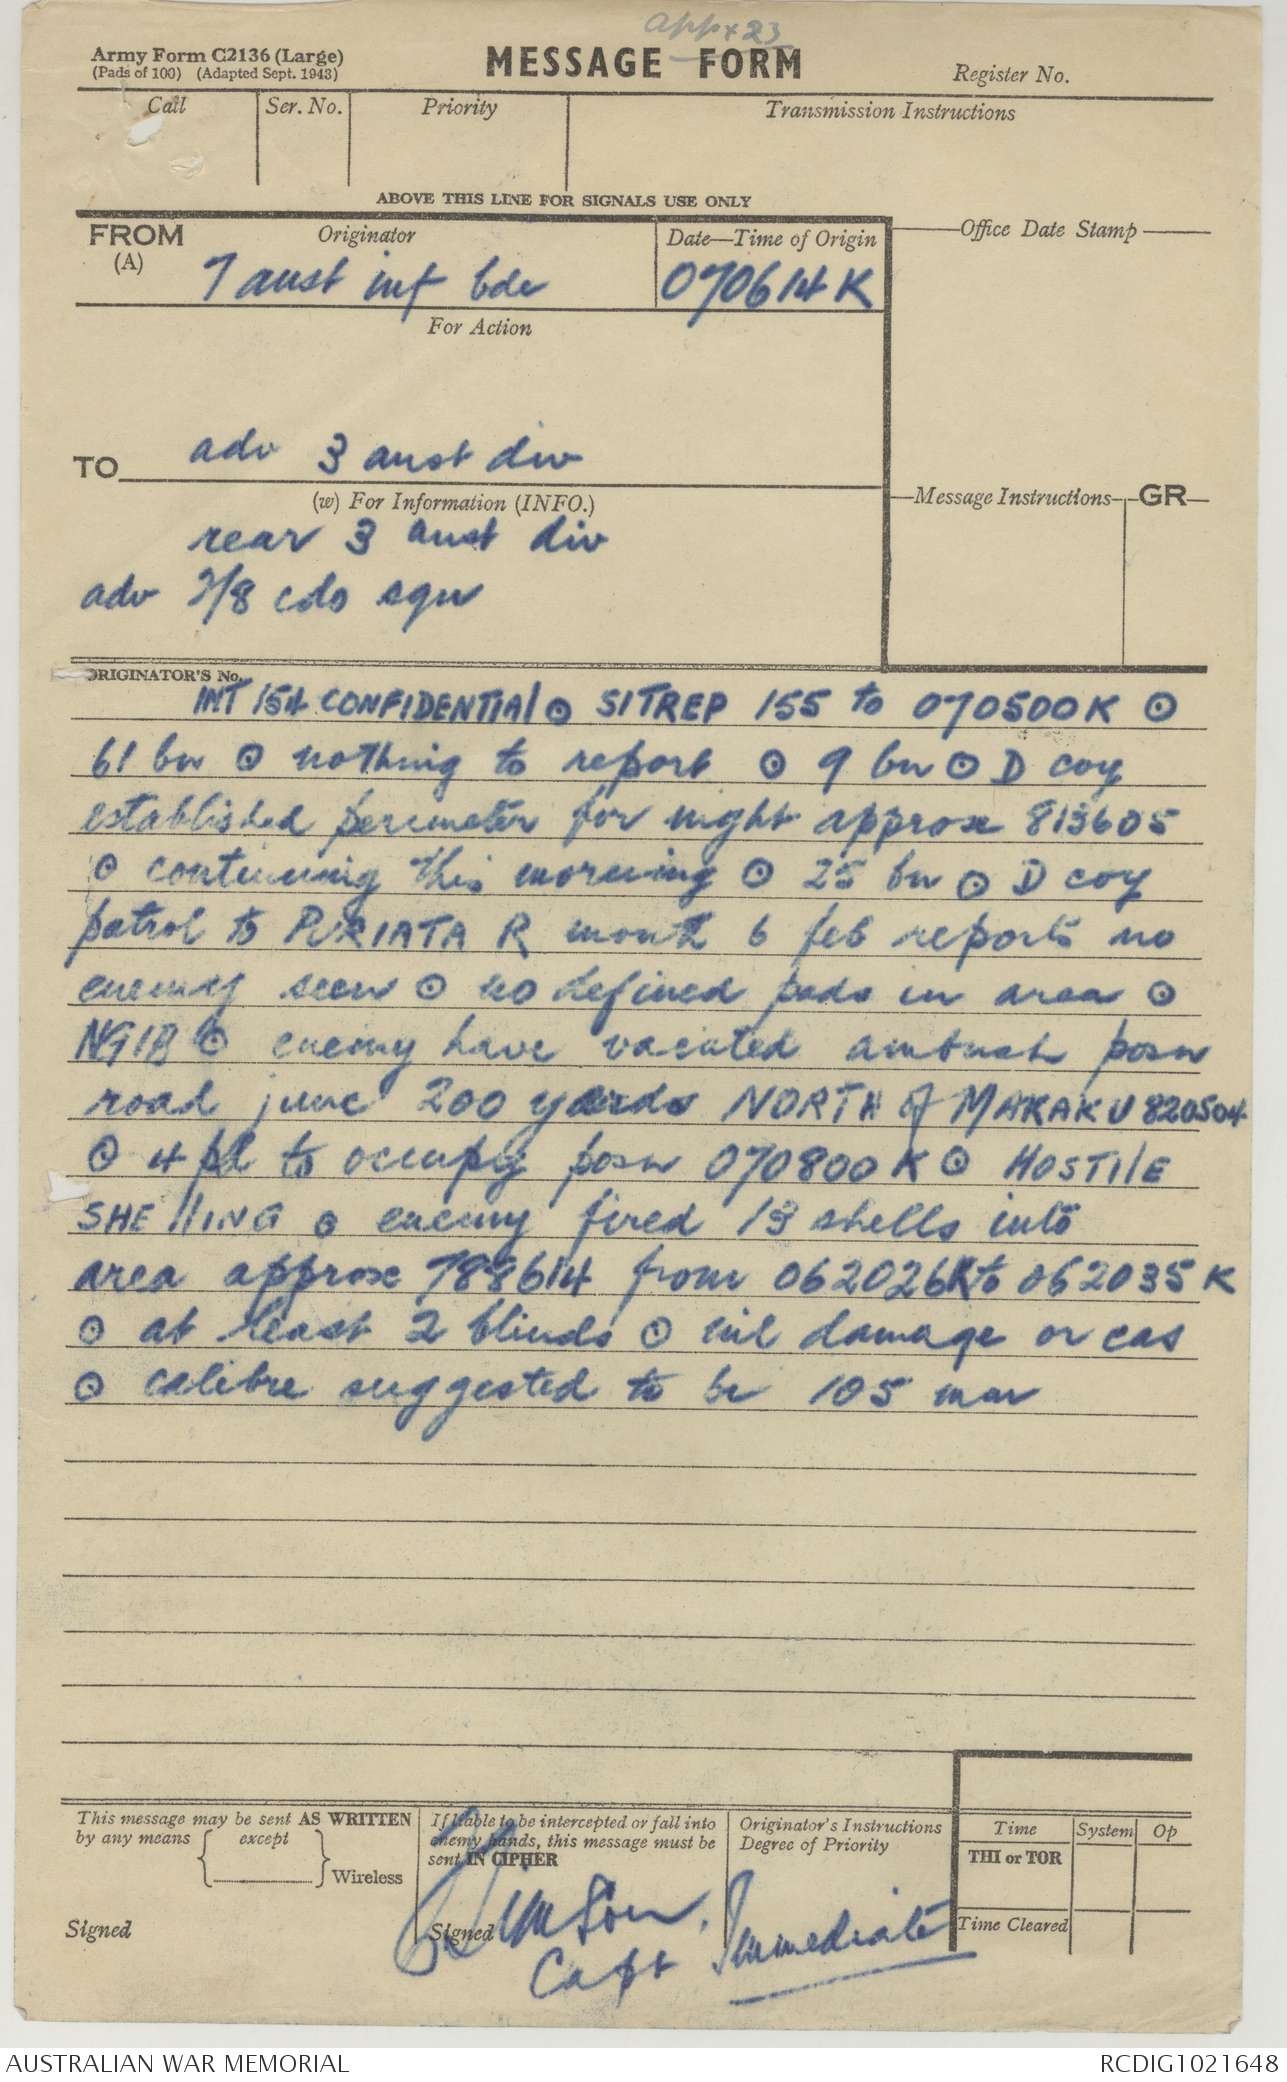 appx 23
Army Form C2136 (Large)
(Pads of 100) (Adapted Sept. 1943)
MESSAGE FORM
Register No.
Call
Ser. No.
Priority
Transmission Instructions
ABOVE THIS LINE FOR SIGNALS USE ONLY
FROM
(A)
Originator
7 aust inf bde
Date—Time of Origin
070614K
Office Date Stamp
For Action
TO adv 3 aust div
(w) For Information (INFO.)
rear 3 aust div
adv 2/8 cdo sqn
Message Instructions
GR
ORIGINATOR'S No.
INT 154 CONFIDENTIAl ⊙ SITREP 155 to 070500K ⊙
61 bn ⊙ nothing to report ⊙ 9 bn ⊙ D coy
established perimeter for night approx 813605
⊙ continuing this morning ⊙ 25 bn ⊙ D coy
patrol to PURIATA R mouth 6 feb reports no
enemy seen ⊙ no defined pads in area ⊙
NGIB ⊙ enemy have vacated ambush posn
road junc 200 yards NORTH of MAKAKU 820504
⊙ 4 pl to occupy posn 070800K ⊙ HOSTIlE
SHEllING ⊙ enemy fired 13 shells into
area approx 788614 from 062026K to 062035K
⊙ at least 2 blinds ⊙ nil damage or cas
⊙ calibre suggested to be 105 mm
This message may be sent AS WRITTEN
by any means except
Wireless
Signed
If liable to be intercepted or fall into
enemy hands, this message must be
sent IN CIPHER
Signed
Capt
Originator's Instructions
Degree of Priority
Immediate
Time
System
Op
THI or TOR
Time Cleared
AUSTRALIAN WAR MEMORIAL
RCDIG1021648